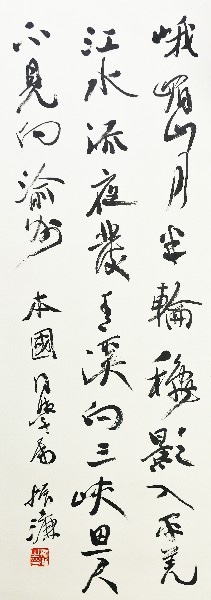 峨眉山月半輪穐影入平羌
江水流夜發清溪向三峽思君
不見向渝州 本國同學屬 振濂